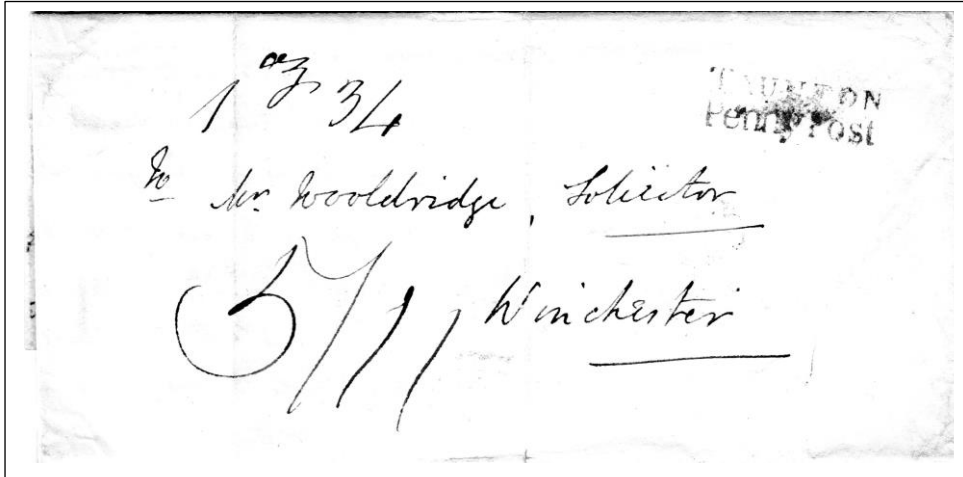 1 oz 3/4
TAUNTON
Penny Post
To Mr. Wooldridge, Solicitor
5/11 Winchester